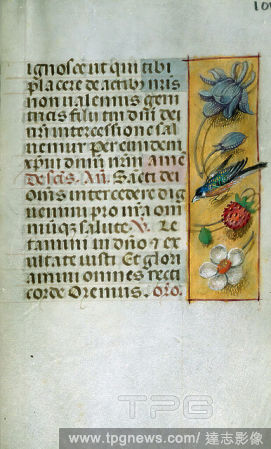 ignosce ut qui tibi
placere de actib9 nr̄is
non valemus geni
tricis filii tui dn̄i dei
nr̄i intercessione sal
vemur per eundem
xp̄m dnm̄ nrm̄ amē
De scīs. Añ. Sācti dei
om̄s intercedere dig
nemini pro nr̄a om̄i
ūq3 salute. V. Le
tamini in dn̄o ⁊ ex
ultate iusti Et glori
amini omnes recti
corde Oremus. oro.
TPG
www.tpgnews.com/ 達志影像